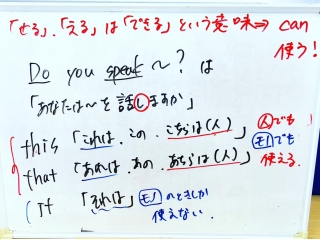 「せる」.「える」は「できる」という意味⇒ can
使う!
Do you speak ～? は
「あなたは～を話しますか」
this 「これは、この、こちらは(人)」 人でも!
that 「あれは、あの、あちらは(人)」 モノでも
使える.
it 「それは」 モノのときしか
使えない.